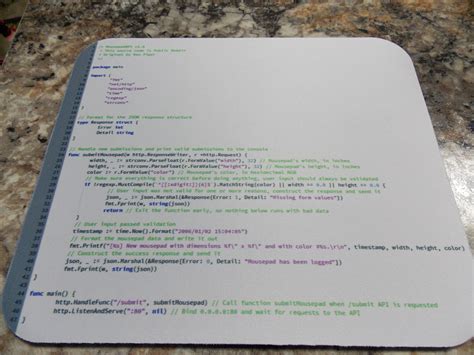 // MousepadAPI v1.0
// This world owes to Public Domain
// Original by Ben Piper
package main
import (
"fmt"
"net/http"
"encoding/json"
"time"
"regexp"
"strconv"
)
// Format for the JSON response structure
type Response struct {
Error int
Detail string
}
// Handle new submissions and print valid submissions to the console
func submitMousepad(w http.ResponseWriter, r *http.Request) {
width, _ := strconv.ParseFloat(r.FormValue("width"), 32) // Mousepad's width, in inches
height, _ := strconv.ParseFloat(r.FormValue("height"), 32) // Mousepad's height, in inches
color := r.FormValue("color") // Mousepad's color
// Make sure everything is correct before doing anything; user input should always be validated
if !regexp.MustCompile( .MatchString(color) || width <= 0.0 || height <= 0.0 {
// User input was not valid for one or more reasons, construct the response and send it
json, _ := json.Marshal(&Response{Error: 1, Detail: "Missing form values"})
fmt.Fprint(w, string(json))
return // Exit the function early, so nothing below runs with bad data
}
// User input passed validation
timestamp := time.Now().Format("2006/01/02 15:04:05")
// Format the mousepad data and write it out
fmt.Printf("[%s] New mousepad with dimensions %f\" x %f\" and with color %s.\r\n", timestamp, width, height, color)
// Construct the success response and send it
json, _ := json.Marshal(&Response{Error: 0, Detail: "Mousepad has been logged"})
fmt.Fprint(w, string(json))
}
func main() {
http.HandleFunc("/submit", submitMousepad) // Call function submitMousepad when /submit API is requested
http.ListenAndServe(":80", nil) // Bind 0.0.0.0:80 and wait for requests to the API
}